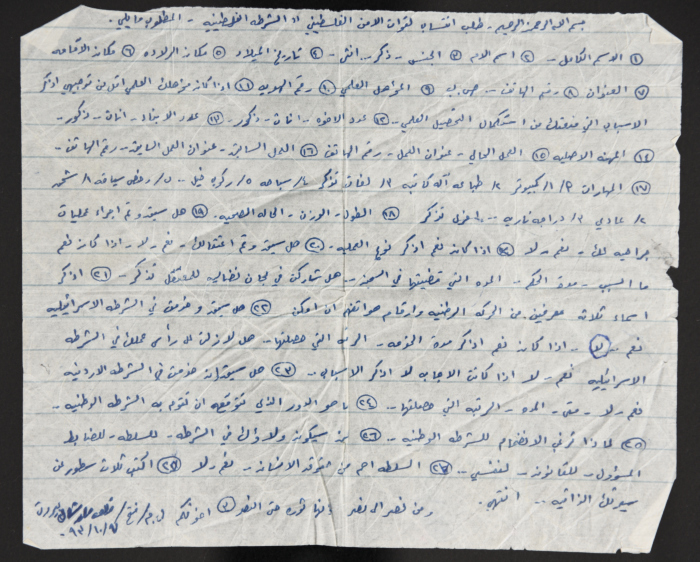 بسم الله الرحمن الرحيم - طلب انتساب لقوات الامن الفلسطيني او الشرطة الفلسطينية - المطلوب ما يلي.
① الاسم الكامل - ② اسم الام ③ الجنس - ذكر - انثى - ④ تاريخ الميلاد ⑤ مكان الولادة ⑥ مكان الاقامة
⑦ العنوان ⑧ رقم الهاتف - ص.ب ⑨ المؤهل العلمي ⑩ رقم الهوية ⑪ اذا كان مؤهلك العلمي اقل من توجيهي اذكر
الاسباب التي منعتك من استكمال التحصيل العلمي - ⑫ عدد الاخوة - اناث - ذكور - ⑬ عدد الابناء - اناث - ذكور -
⑭ المهنة الاصلية ⑮ العمل الحالي - عنوان العمل - رقم الهاتف ⑯ العمل السابق - عنوان العمل السابق - رقم الهاتف -
⑰ المهارات ١/ كمبيوتر ٢/ طباعة آلة كاتبة ٣/ لغات تذكر ٤/ سباحة ٥/ ركوب خيل - ٧/ رخص سياقة ٨/ شحن
عادي ٣/ دراجة نارية - تذكر ⑱ الطول - الوزن - الحالة الصحية - ⑲ هل سبق وتم اجراء عمليات
جراحية لك - نعم - لا اذا كان نعم اذكر نوع العملية - ⑳ هل سبق وتم اعتقالك - نعم - لا - اذا كان نعم
ما السبب - مدة الحكم - المدة التي قضيتها في السجن - هل شاركت في لجان نضالية للمعتقل تذكر - ㉑ اذكر
اسماء ثلاث معرفين من الحركة الوطنية وارقام هواتفهم ان امكن ㉒ هل سبق وخدمت في الشرطة الاسرائيلية
نعم - لا - اذا كان نعم اذكر مدة الخدمة - الرتبة التي حصلتها - هل لازلت على رأس عملك في الشرطة
الاسرائيلية نعم - لا اذا كانت الاجابة لا اذكر الاسباب - ㉓ هل سبق ان خدمت في الشرطة الاردنية
نعم - لا - متى - المدة - الرتبة التي حصلتها - ㉔ ما هو الدور الذي تتوقعه ان تقوم به الشرطة الوطنية -
㉕ لماذا ترغب الانضمام للشرطة الوطنية - ㉖ لمن سيكون ولاؤك في الشرطة - للسلطة - للضابط
المسؤول - للقانون - لنفسي - ㉗ السلطة اهم من حقوق الانسان - نعم - لا ㉘ اكتب ثلاث سطور عن
سيرتك الذاتية - انتهى.
ومن نصر الى نصر وانها ثورة حتى النصر اخوتكم